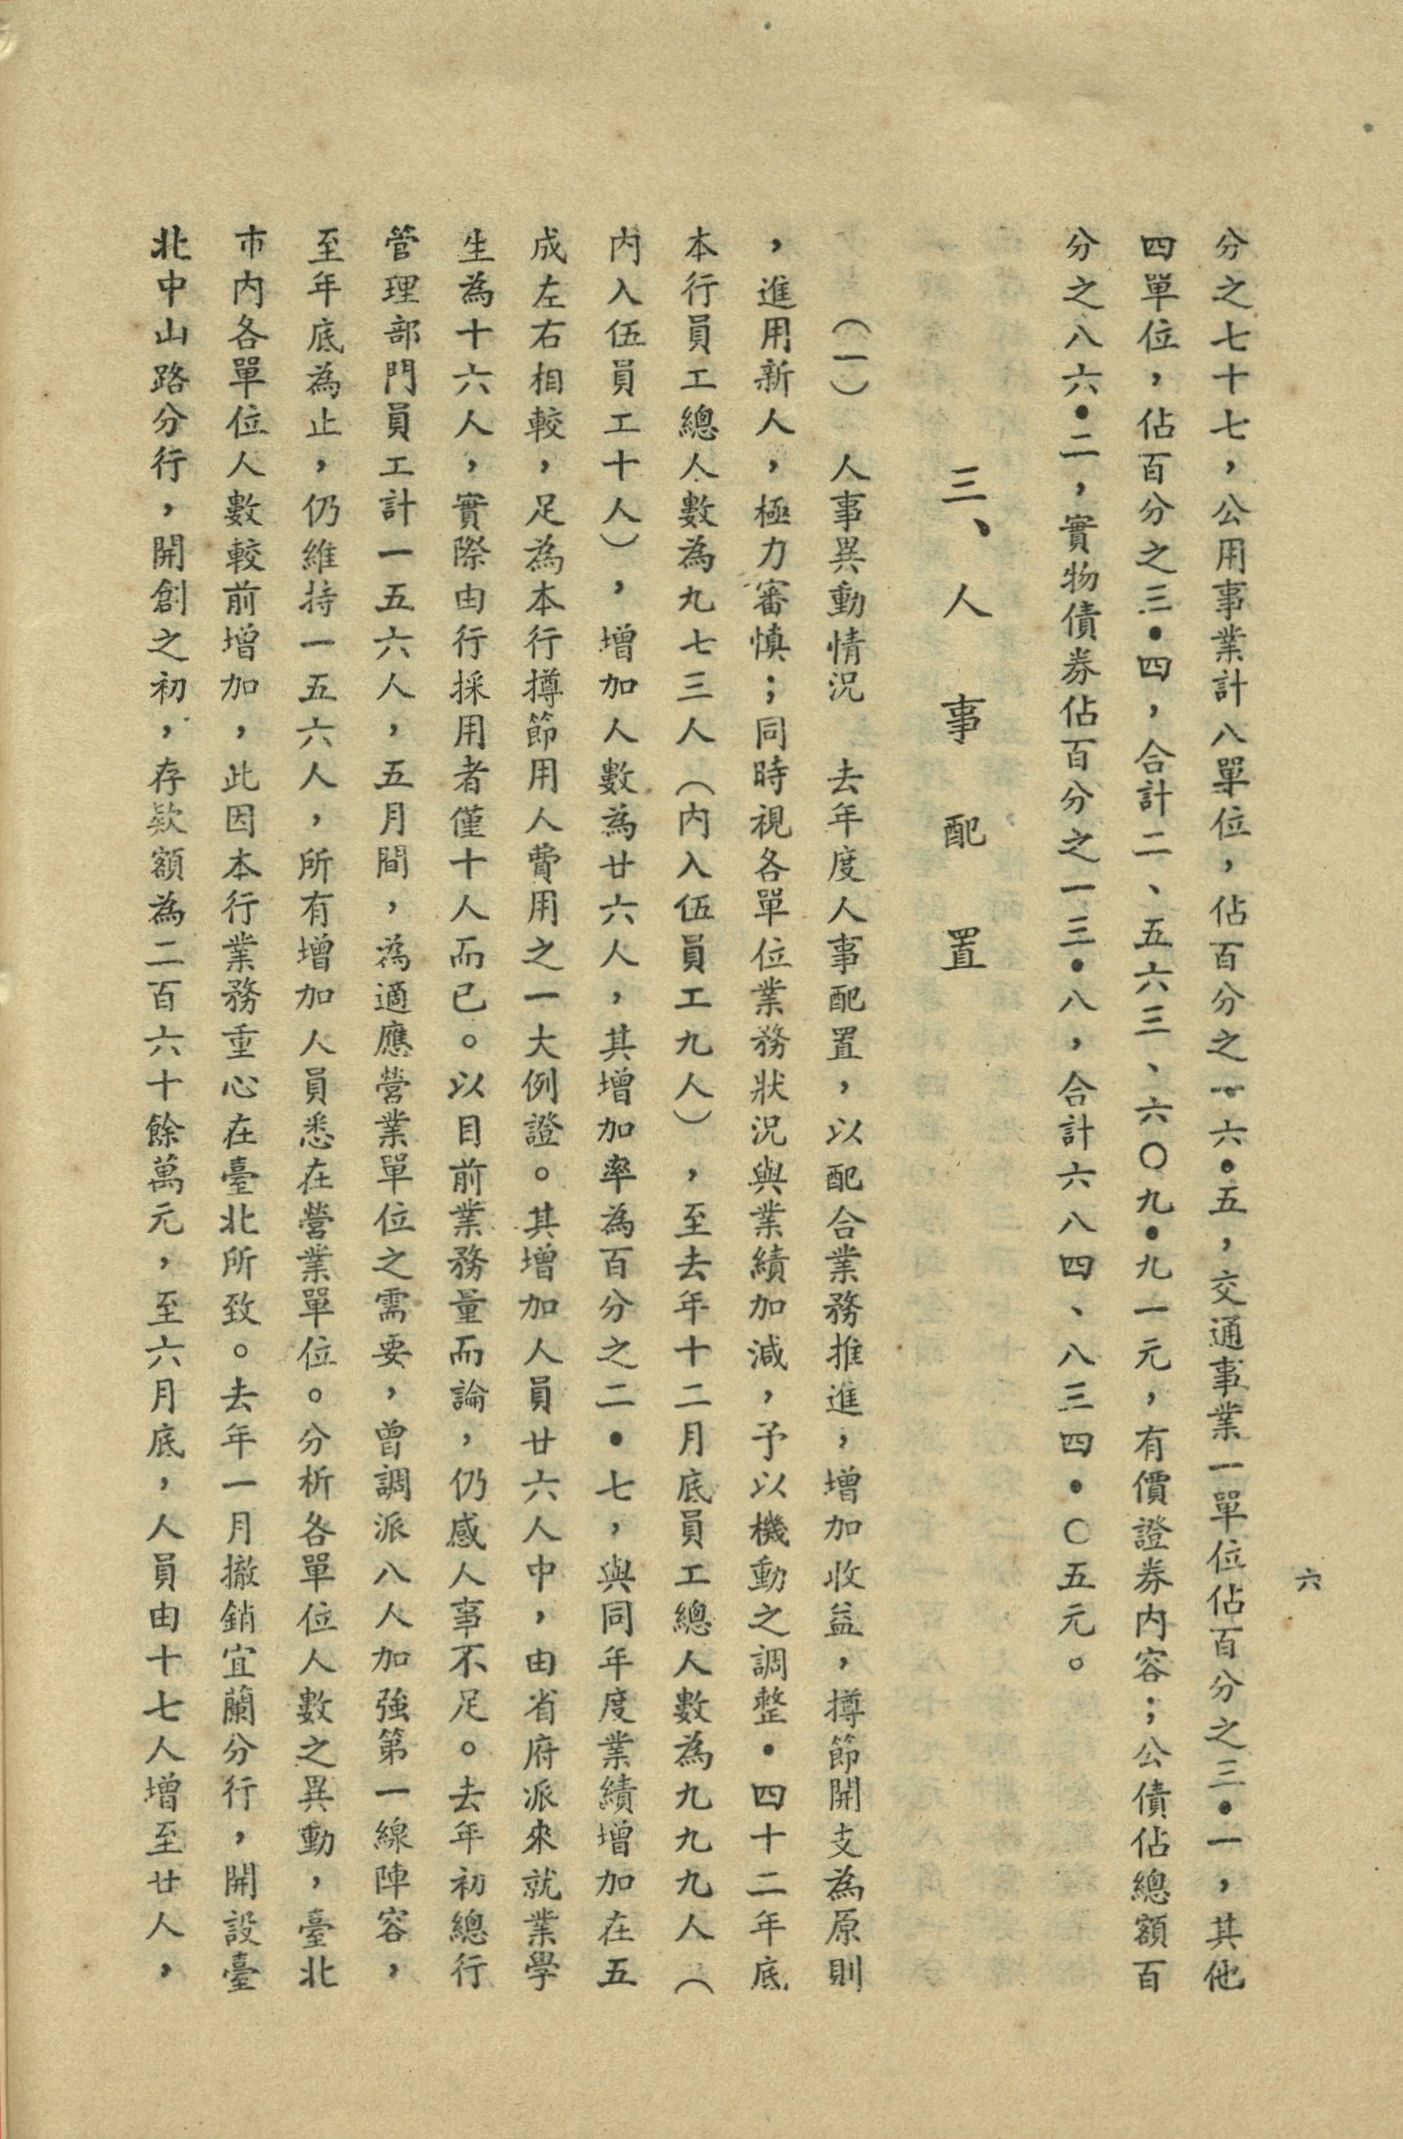 分之七十七，公用事業計八單位，佔百分之一六•五，交通事業一單位佔百分之三•一，其他
四單位，佔百分之三•四，合計二、五六三、六〇九•九一元，有價證券內容；公債佔總額百
分之八六•二，實物債券佔百分之一三•八，合計六八四、八三四•〇五元。
三、人事配置
（一）　人事異動情況　去年度人事配置，以配合業務推進，增加收益，撙節開支為原則
，進用新人，極力審慎；同時視各單位業務狀況與業績加減，予以機動之調整•四十二年底
本行員工總人數為九七三人（內入伍員工九人），至去年十二月底員工總人數為九九九人（
內入伍員工十人），增加人數為廿六人，其增加率為百分之二•七，與同年度業績增加在五
成左右相較，足為本行撙節用人費用之一大例證。其增加人員廿六人中，由省府派來就業學
生為十六人，實際由行採用者僅十人而已。以目前業務量而論，仍感人事不足。去年初總行
管理部門員工計一五六人，五月間，為適應營業單位之需要，曾調派八人加強第一線陣容，
至年底為止，仍維持一五六人，所有增加人員悉在營業單位。分析各單位人數之異動，臺北
市內各單位人數較前增加，此因本行業務重心在臺北所致。去年一月撤銷宜蘭分行，開設臺
北中山路分行，開創之初，存欵額為二百六十餘萬元，至六月底，人員由十七人增至廿人，
六